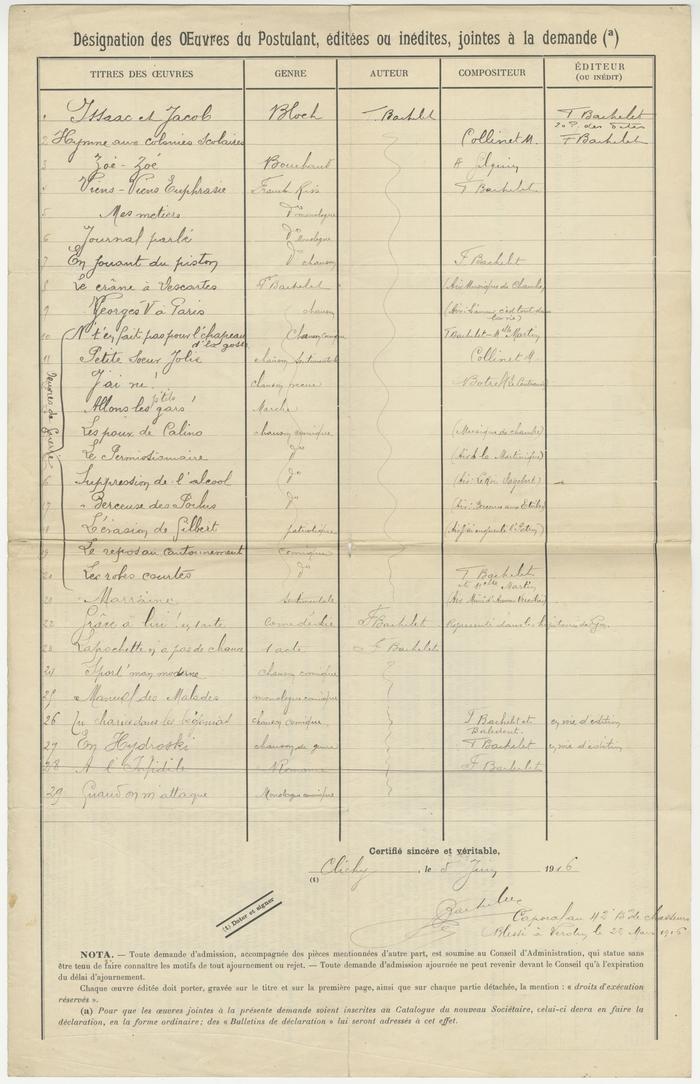 Désignation des Œuvres du Postulant, éditées ou inédites, jointes à la demande (a)
TITRES DES ŒUVRES GENRE AUTEUR COMPOSITEUR ÉDITEUR
(OU INÉDIT)
1 Issac et Jacob Bloch F. Bachelet F Bachelet
2 Hymne aux colonies scolaires Collinet M. F Bachelet
3 Zoé-Zoé Bouchaut
4 Viens-Viens Euphrasie F Bachelet
5 Mes metiers do monologue
6 Journal parlé do monologue
7 En jouant du piston do chanson F Bachelet
8 Le crâne à Descartes F Bachelet (Air: Musique de Chambre)
9 Georges V à Paris chanson
10 N't'en fait pas pour l'chapeau Chanson comique F Bachelet - Melle Martin
d'la gosse
11 Petite Sœur Jolie chanson sentimentale Collinet M.
J'ai né! chanson
Allons les p'tits gars! Marche
Les poux de Calino chanson comique (Musique de chambre)
Le Permissionnaire do (Air: à la Martinique)
16 Suppression de l'alcool do
17 Berceuse des Poilus do
18 L'évasion de Gilbert patriotique
19 Le repos au cantonnement comique
20 Les robes courtes do F Bachelet
et Melle Martin
21 Marraine Sentimentale
Œuvres de Guerre
22 Grâce à lui! 1 acte Comédie F Bachelet Représenté dans les hopitaux de
23 Lapochette n'a pas de chance 1 acte F Bachelet
24 Sport' man moderne chanson comique
25 Manuel des Malades monologue comique
26 Un chat dans les bégonias chanson comique F Bachelet et en voie d'édition
27 En Hydroski chanson de genre F Bachelet en voie d'édition
28 A l'Infidèle Romance F Bachelet
29 Quand on m'attaque Monologue comique
Certifié sincère et véritable,
(1) Clichy, le 5 Juin 1916
(1) Dater et signer
Bachelet
Caporal au 42e Bon de chasseurs
Blessé à Verdun le 22 Mars 1916
NOTA. — Toute demande d'admission, accompagnée des pièces mentionnées d'autre part, est soumise au Conseil d'Administration, qui statue sans
être tenu de faire connaître les motifs de tout ajournement ou rejet. — Toute demande d'admission ajournée ne peut revenir devant le Conseil qu'à l'expiration
du délai d'ajournement.
Chaque œuvre éditée doit porter, gravée sur le titre et sur la première page, ainsi que sur chaque partie détachée, la mention : « droits d'exécution
réservés ».
(a) Pour que les œuvres jointes à la présente demande soient inscrites au Catalogue du nouveau Sociétaire, celui-ci devra en faire la
déclaration, en la forme ordinaire; des « Bulletins de déclaration » lui seront adressés à cet effet.